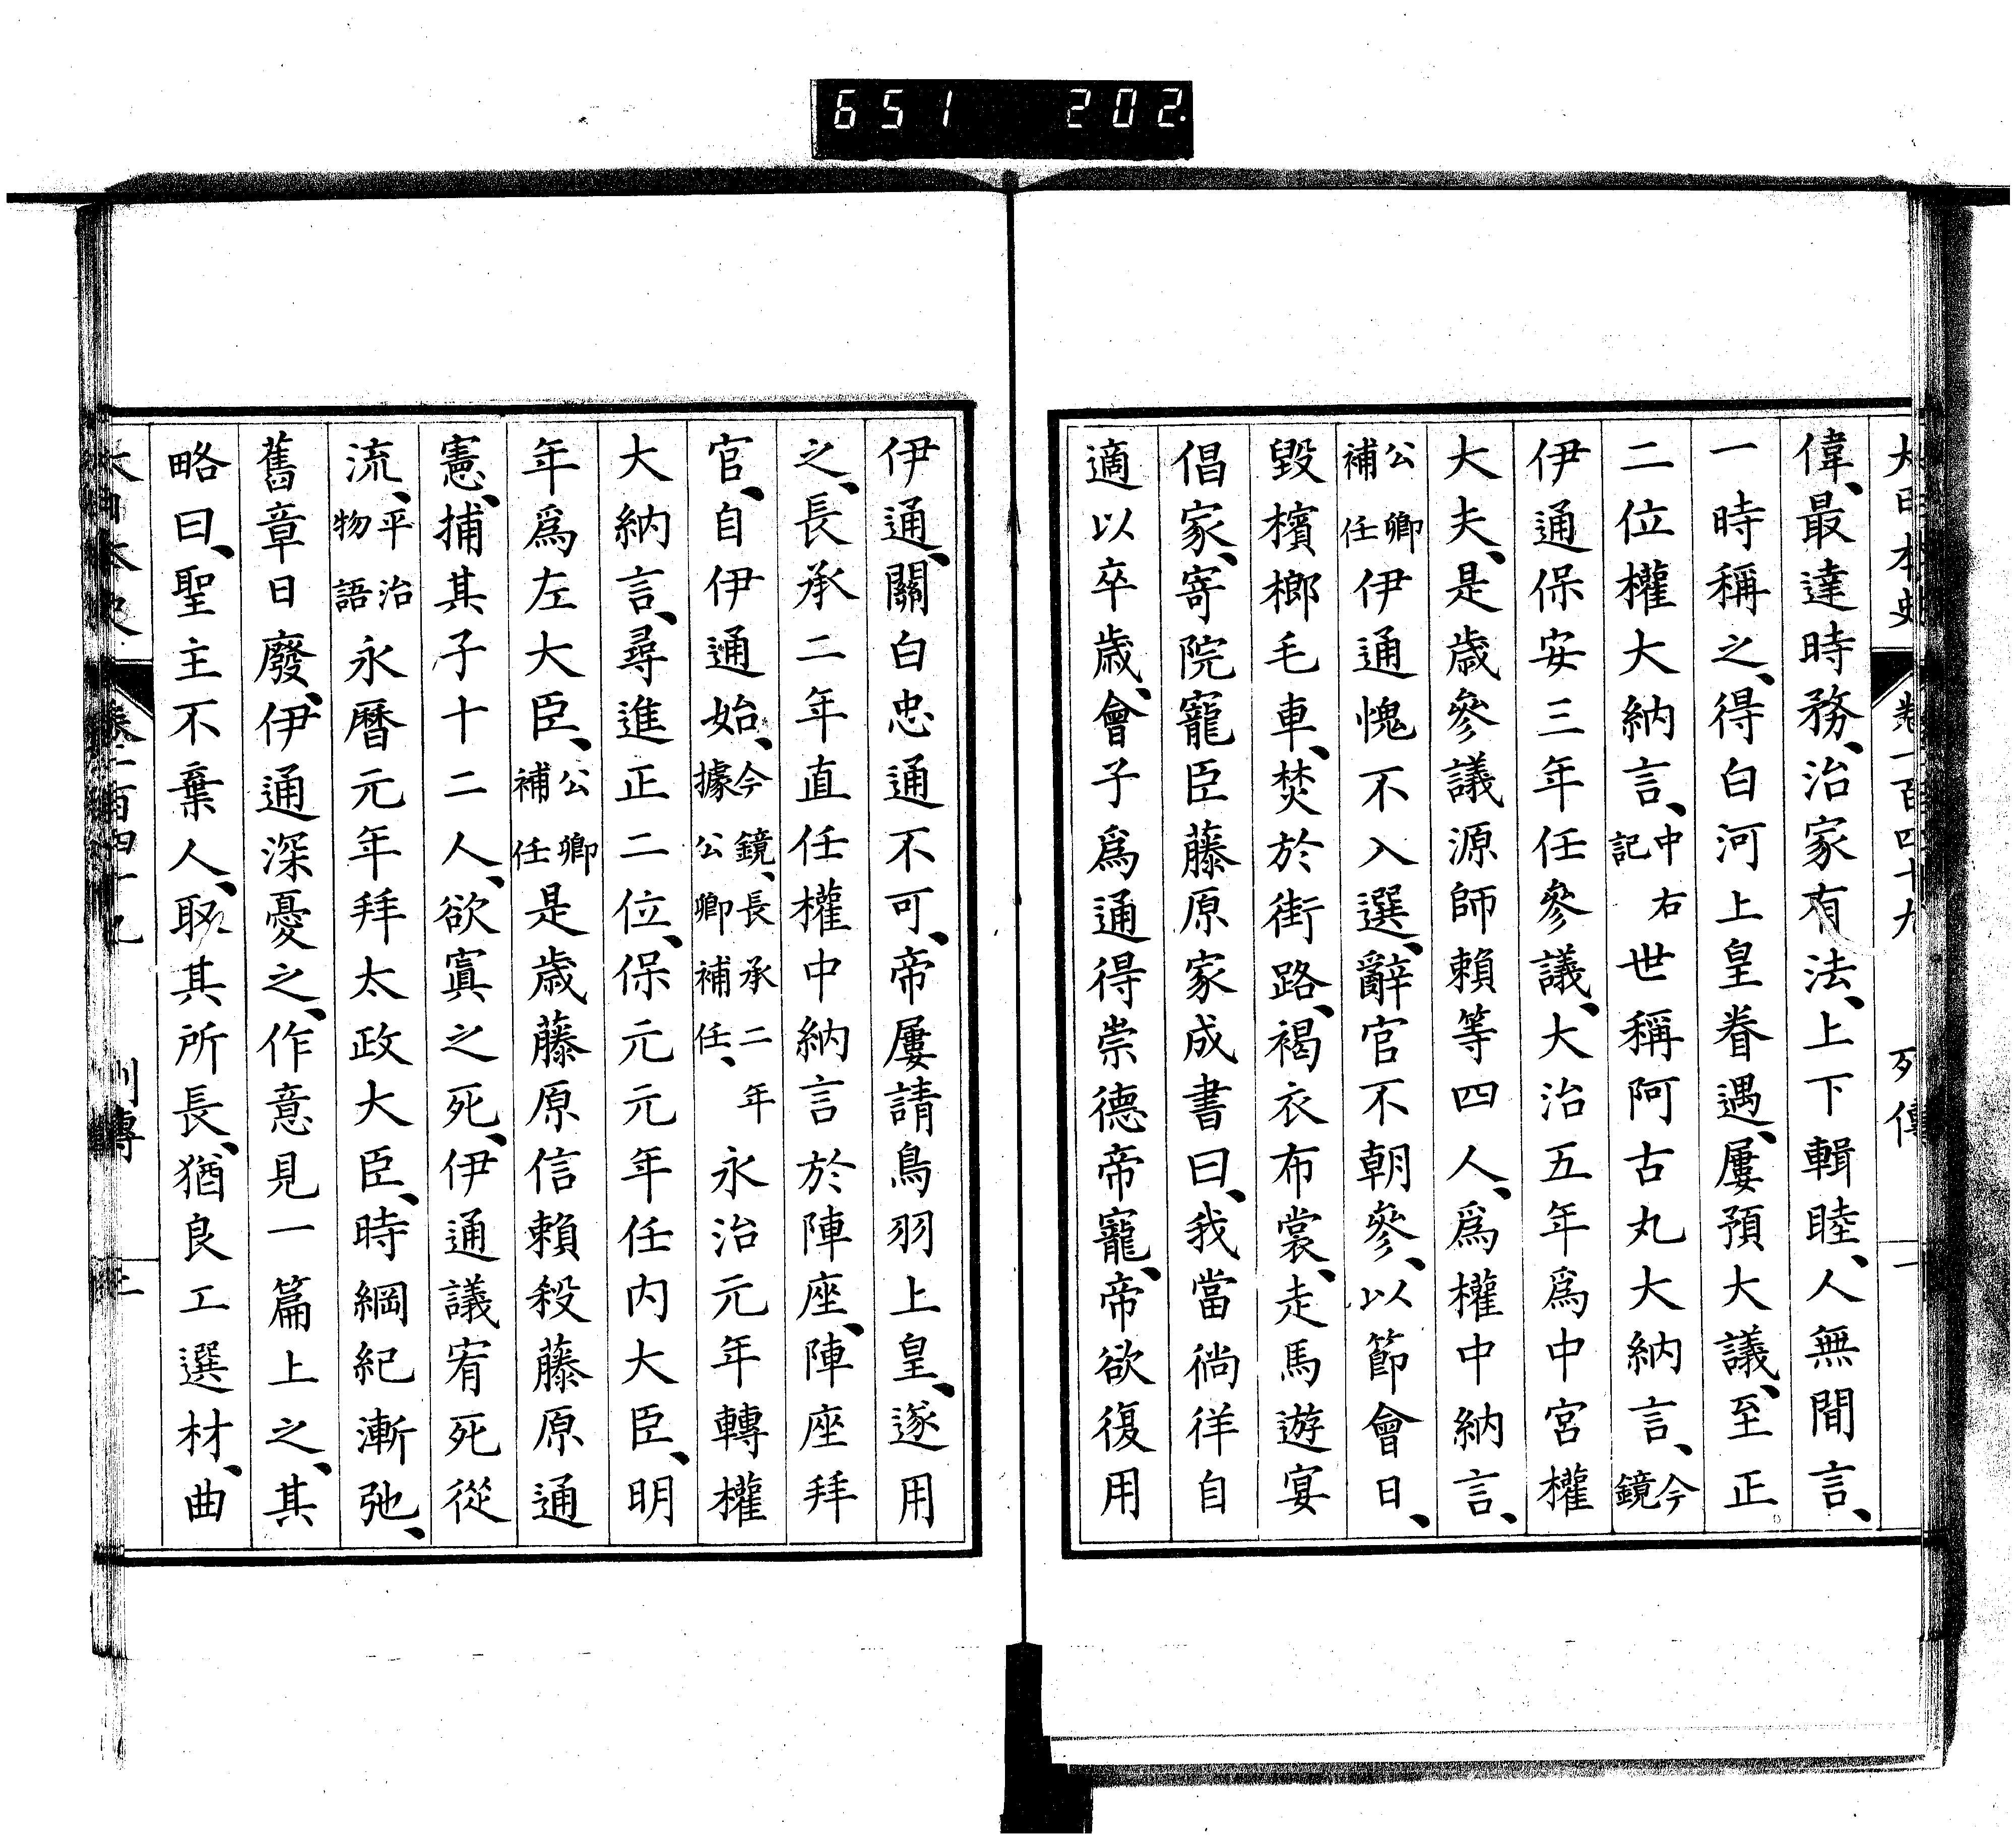 651 202.
大日本史 卷一百四十九 列傳 一
偉、最達時務、治家有法、上下輯睦、人無間言、
一時稱之、得白河上皇眷遇、屢預大議、至正
二位權大納言、中右記世稱阿古丸大納言、今鏡
伊通保安三年任參議、大治五年爲中宮權
大夫、是歲參議源師賴等四人、爲權中納言、
公卿補任伊通愧不入選、辭官不朝參、以節會日、
毀檳榔毛車、焚於街路、褐衣布裳、走馬遊宴
倡家、寄院寵臣藤原家成書曰、我當徜徉自
適以卒歲、會子爲通得崇德帝寵、帝欲復用
伊通、關白忠通不可、帝屢請鳥羽上皇、遂用
之、長承二年直任權中納言於陣座、陣座拜
官、自伊通始、今鏡、長承二年據公卿補任、永治元年轉權
大納言、尋進正二位、保元元年任内大臣、明
年爲左大臣、公卿補任是歲藤原信賴殺藤原通
憲、捕其子十二人、欲寘之死、伊通議宥死從
流、平治物語永曆元年拜太政大臣、時綱紀漸弛、
舊章日廢、伊通深憂之、作意見一篇上之、其
略曰、聖主不棄人、取其所長、猶良工選材、曲
大日本史 卷一百四十九 列傳